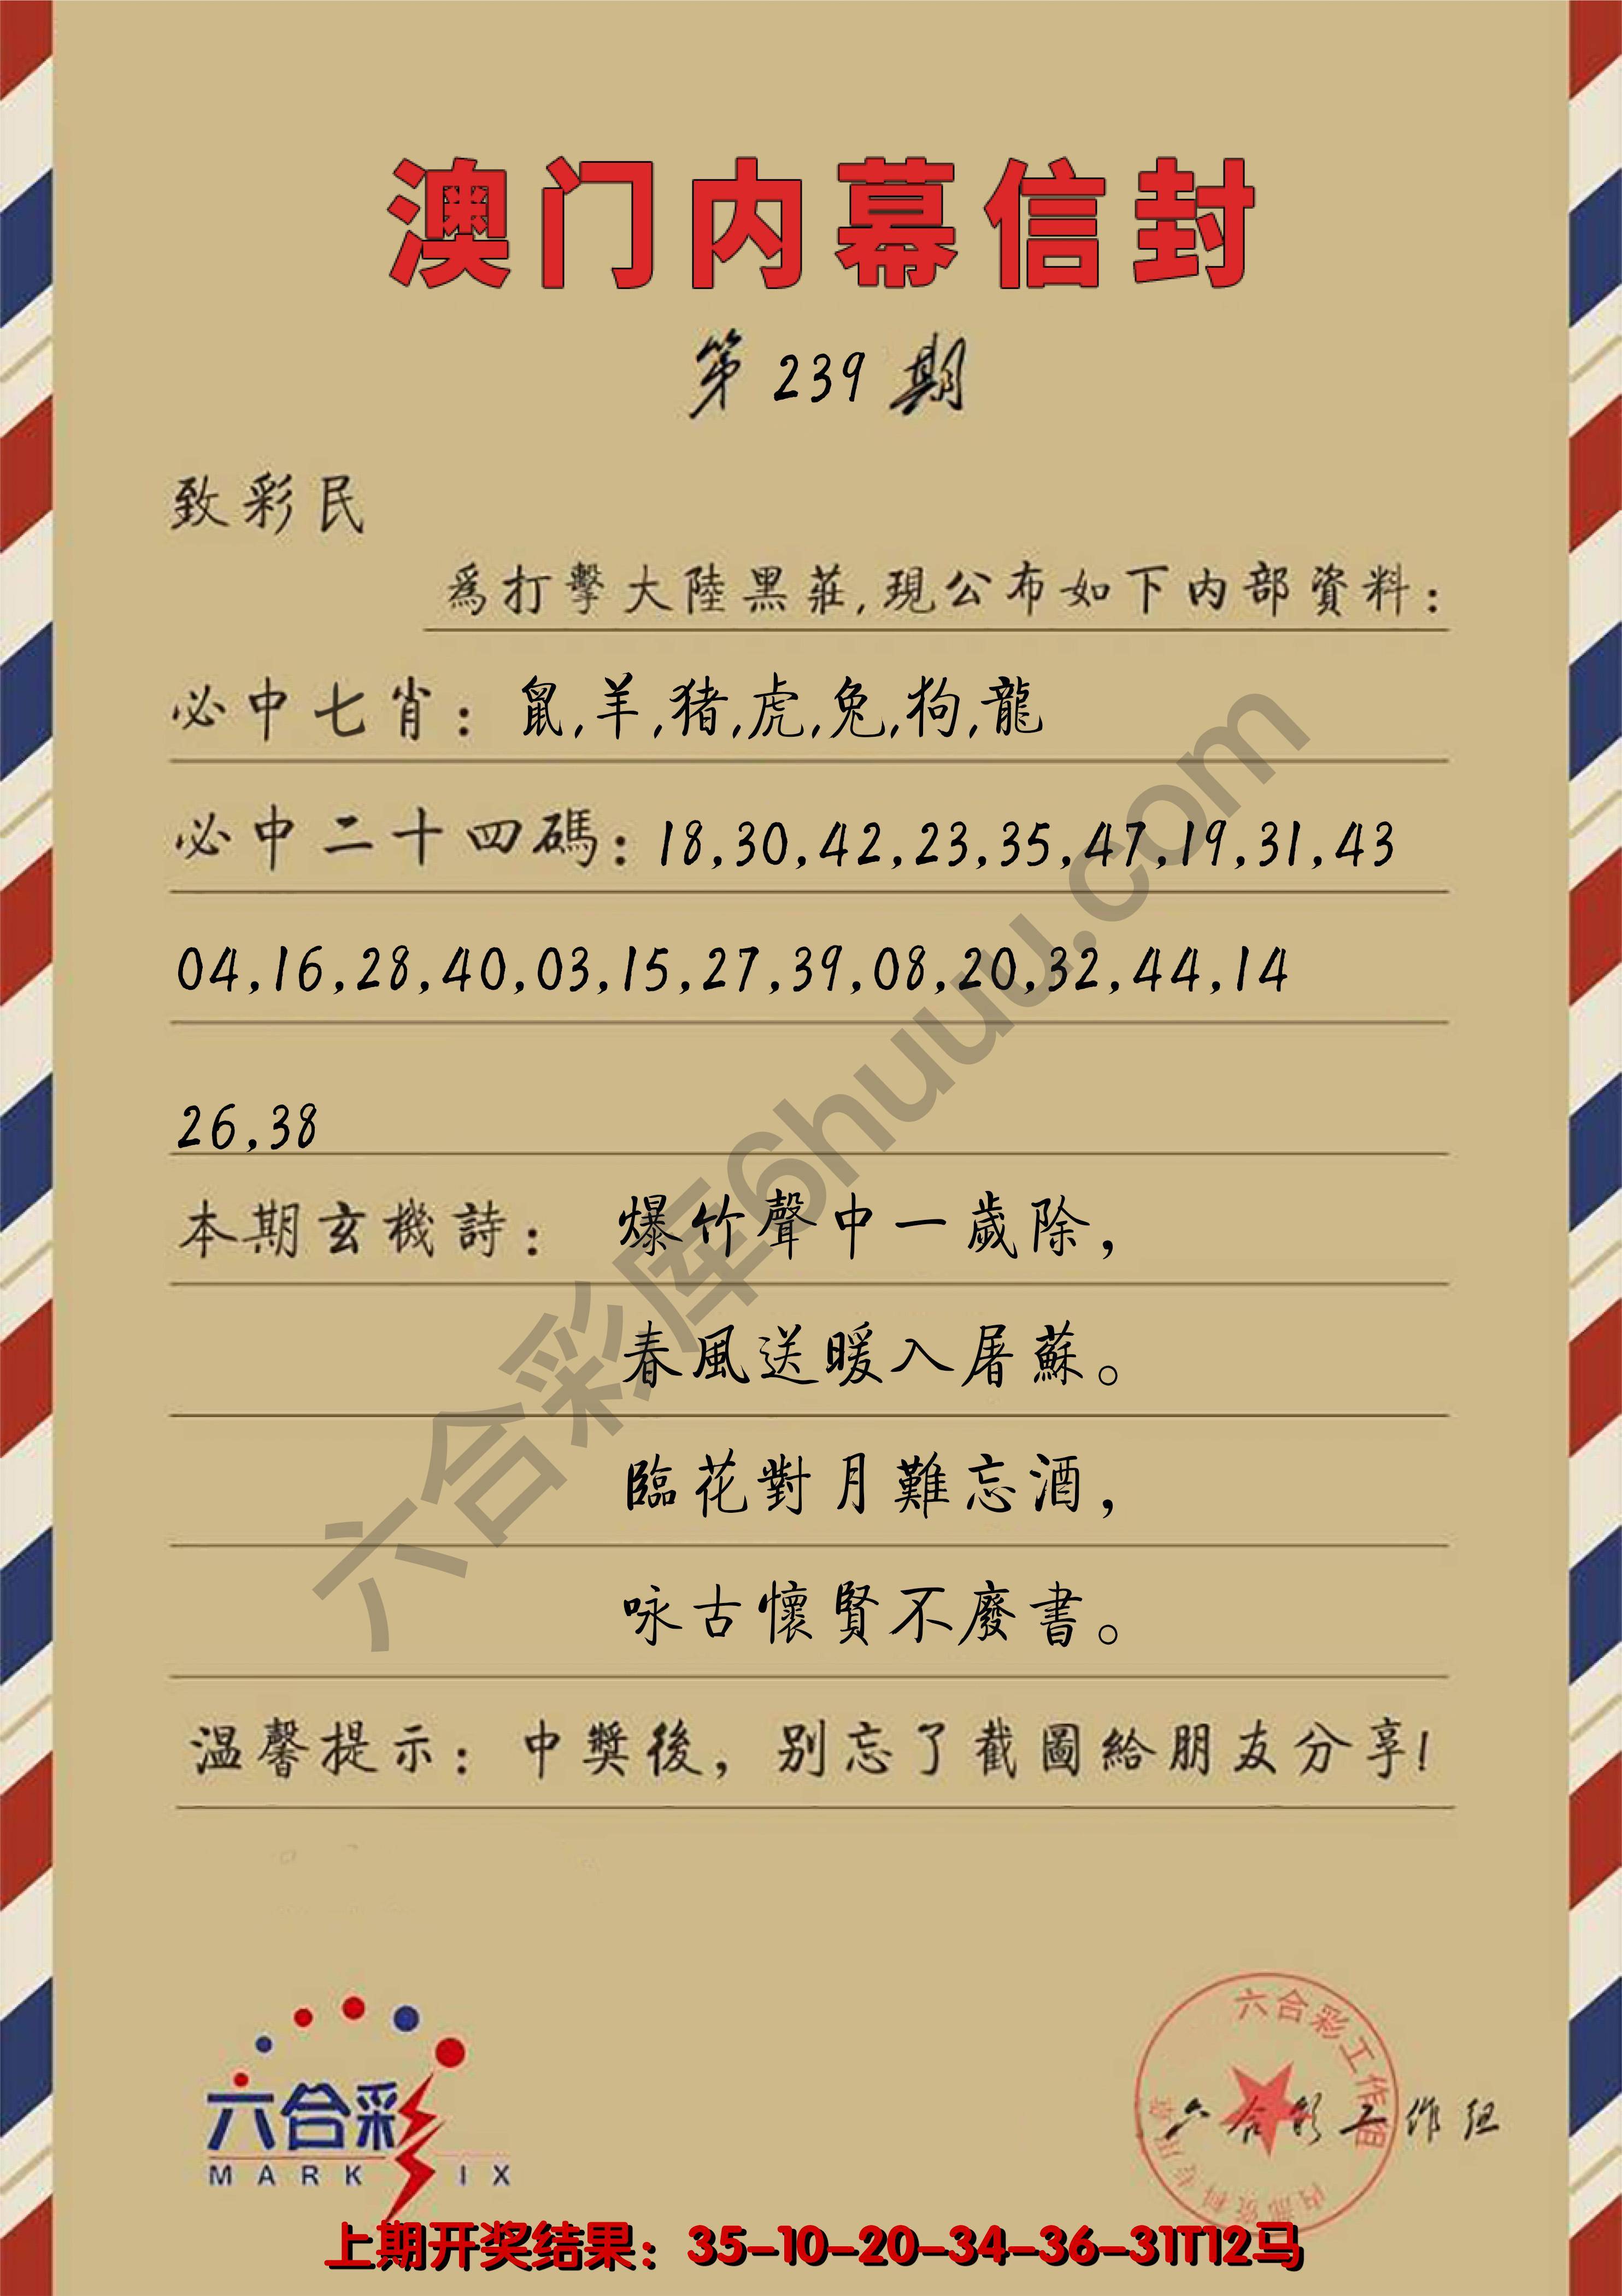 澳门内幕信封
第 239 期
致彩民
爲打擊大陸黑莊,現公布如下内部資料:
必中七肖: 鼠,羊,猪,虎,兔,狗,龍
必中二十四碼: 18,30,42,23,35,47,19,31,43
04,16,28,40,03,15,27,39,08,20,32,44,14
26,38
本期玄機詩: 爆竹聲中一歲除,
春風送暖入屠蘇。
臨花對月難忘酒,
咏古懷賢不廢書。
温馨提示: 中獎後,别忘了截圖給朋友分享!
六合彩库6huuu.com
六合彩
MARK SIX
六合彩工作组
内部资料专用章
六合彩工作组
上期开奖结果：35-10-20-34-36-31T12马